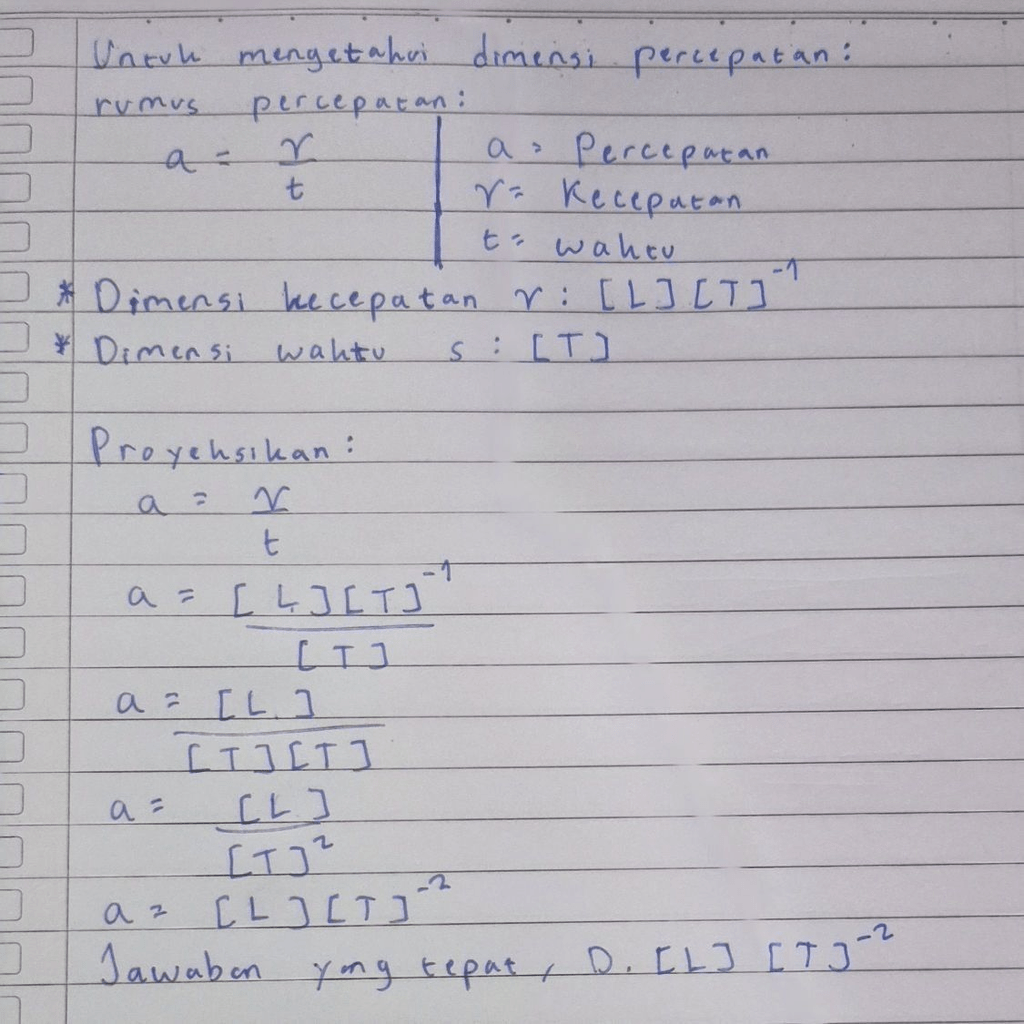 Untuk mengetahui dimensi percepatan:
rumus percepatan:
a = v
t
a = Percepatan
v = Kecepatan
t = waktu
* Dimensi kecepatan v : [L][T]⁻¹
* Dimensi waktu s : [T]
Proyeksikan:
a = v
t
a = [L][T]⁻¹
[T]
a = [L]
[T][T]
a = [L]
[T]²
a = [L][T]⁻²
Jawaban yang tepat, D. [L] [T]⁻²